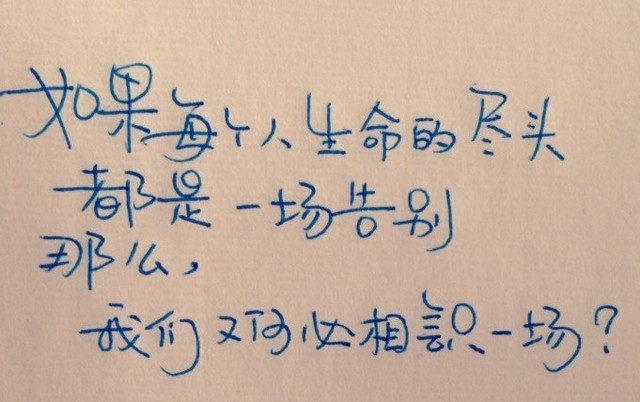 如果每个人生命的尽头
都是一场告别
那么，
我们又何必相識一场？